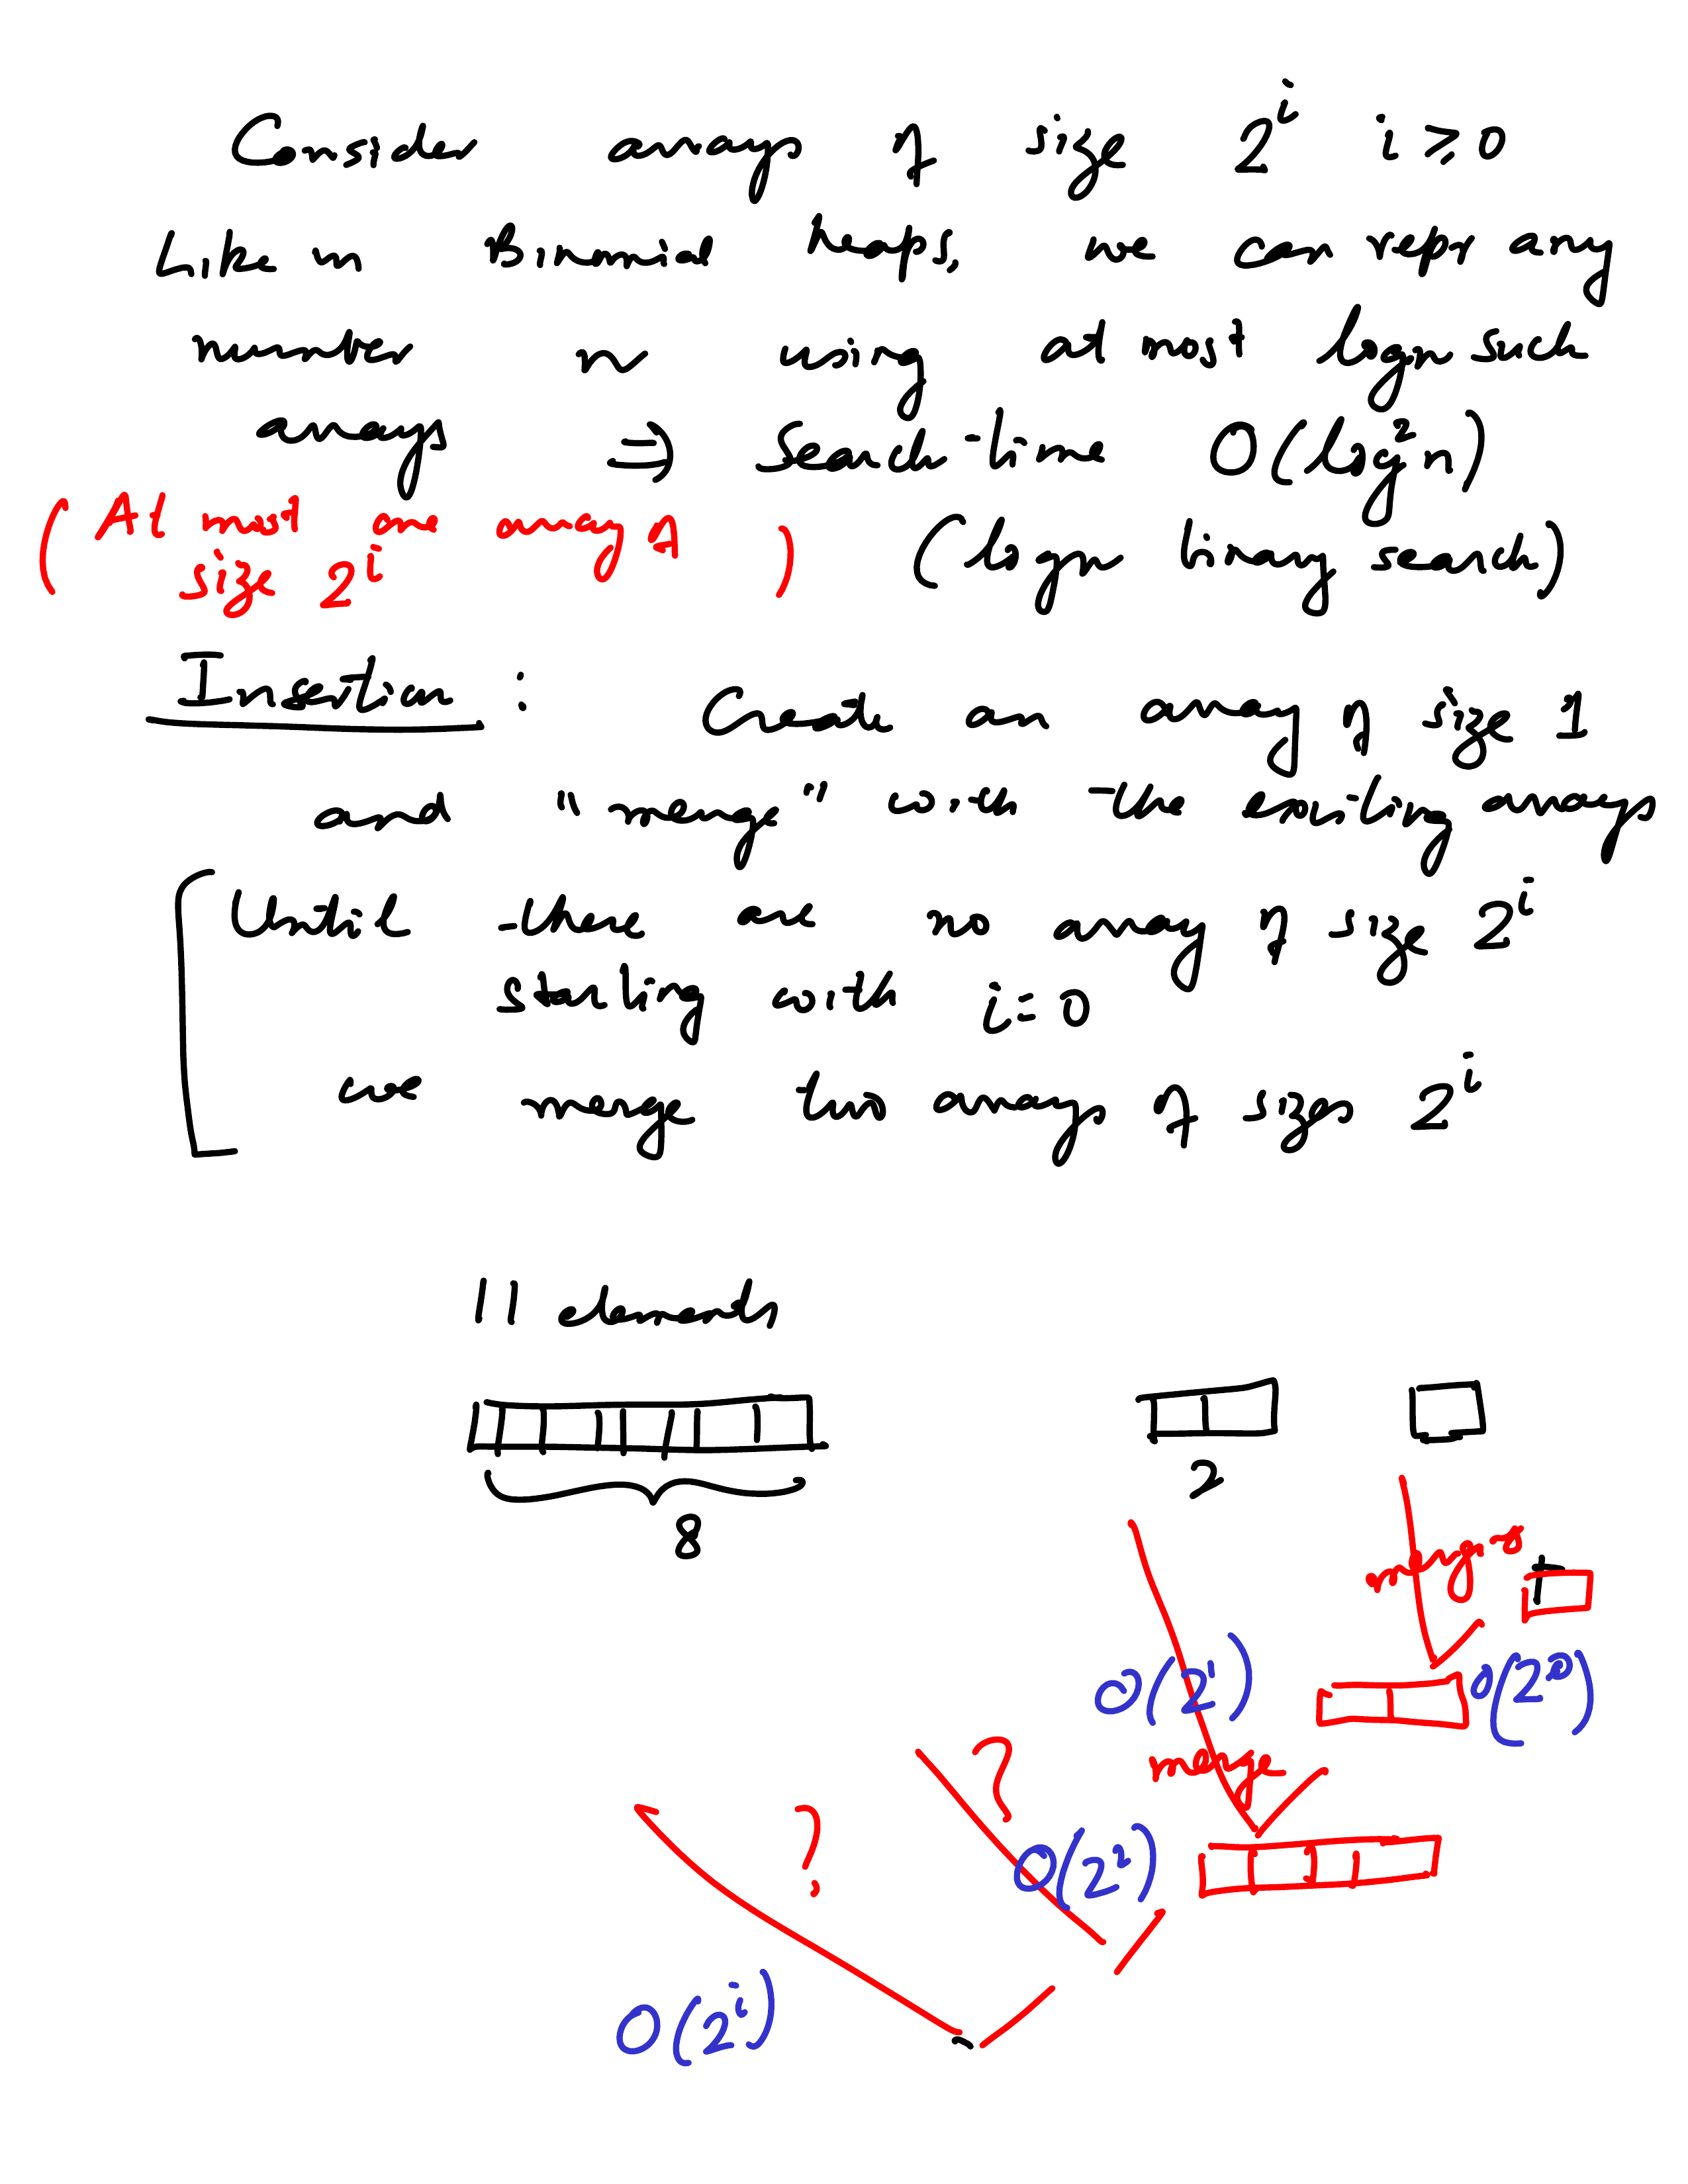 Consider arrays of size 2^i i ≥ 0
Like in Binomial heaps, we can repr any
number n using at most log n such
arrays ⇒ Search time O(log²n)
(At most one array of size 2^i) (log n binary search)
Insertion : Create an array of size 1
and "merge" with the existing arrays
Until there are no array of size 2^i
starting with i=0
we merge two arrays of sizes 2^i
11 elements
2
8
merge
O(2^1)
O(2^0)
merge
?
?
O(2^2)
O(2^i)